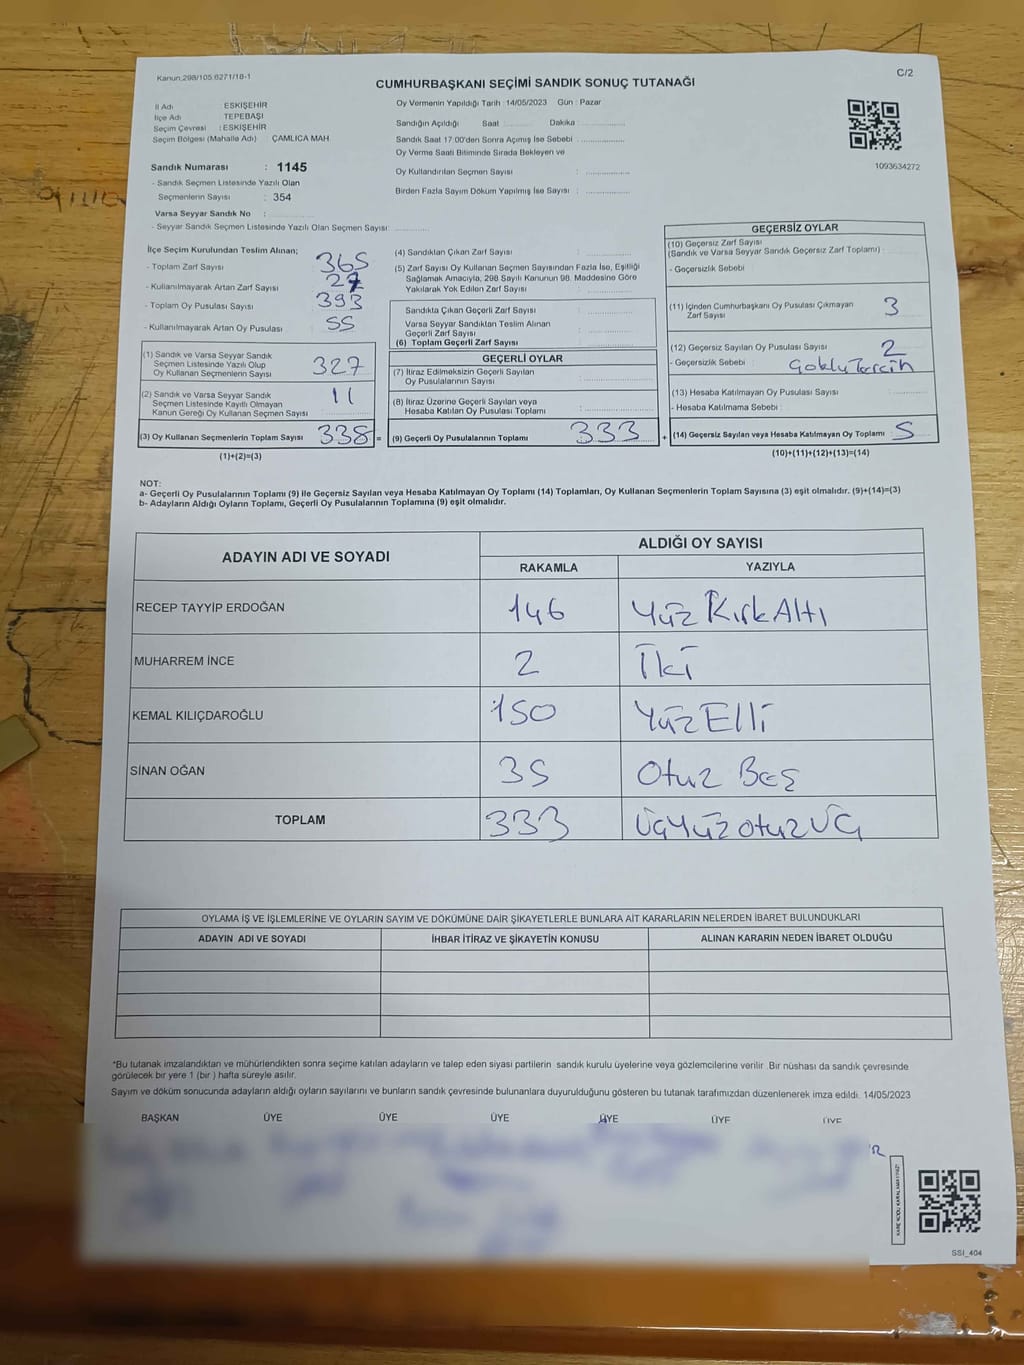 Kanun:298/105.6271/18-1
C/2
CUMHURBAŞKANI SEÇİMİ SANDIK SONUÇ TUTANAĞI
İl Adı ESKİŞEHİR
İlçe Adı TEPEBAŞI
Seçim Çevresi : ESKİŞEHİR
Seçim Bölgesi (Mahalle Adı) ÇAMLICA MAH
Sandık Numarası : 1145
- Sandık Seçmen Listesinde Yazılı Olan
Seçmenlerin Sayısı : 354
Varsa Seyyar Sandık No :
- Seyyar Sandık Seçmen Listesinde Yazılı Olan Seçmen Sayısı:
Oy Vermenin Yapıldığı Tarih : 14/05/2023 Gün : Pazar
Sandığın Açıldığı Saat Dakika
Sandık Saat 17:00'den Sonra Açımış İse Sebebi
Oy Verme Saati Bitiminde Sırada Bekleyen ve
Oy Kullandırılan Seçmen Sayısı :
Birden Fazla Sayım Döküm Yapılmış İse Sayısı :
1093634272
İlçe Seçim Kurulundan Teslim Alınan;
- Toplam Zarf Sayısı 365
- Kullanılmayarak Artan Zarf Sayısı 27
- Toplam Oy Pusulası Sayısı 393
- Kullanılmayarak Artan Oy Pusulası 55
(1) Sandık ve Varsa Seyyar Sandık
Seçmen Listesinde Yazılı Olup
Oy Kullanan Seçmenlerin Sayısı 327
(2) Sandık ve Varsa Seyyar Sandık
Seçmen Listesinde Kayıtlı Olmayan
Kanun Gereği Oy Kullanan Seçmen Sayısı 11
(3) Oy Kullanan Seçmenlerin Toplam Sayısı 338 =
(1)+(2)=(3)
(4) Sandıktan Çıkan Zarf Sayısı :
(5) Zarf Sayısı Oy Kullanan Seçmen Sayısından Fazla İse, Eşitliği
Sağlamak Amacıyla, 298 Sayılı Kanunun 98. Maddesine Göre
Yakılarak Yok Edilen Zarf Sayısı :
Sandıkta Çıkan Geçerli Zarf Sayısı :
Varsa Seyyar Sandıktan Teslim Alınan
Geçerli Zarf Sayısı :
(6) Toplam Geçerli Zarf Sayısı :
GEÇERLİ OYLAR
(7) İtiraz Edilmeksizin Geçerli Sayılan
Oy Pusulalarının Sayısı :
(8) İtiraz Üzerine Geçerli Sayılan veya
Hesaba Katılan Oy Pusulası Toplamı :
(9) Geçerli Oy Pusulalarının Toplamı 333 +
GEÇERSİZ OYLAR
(10) Geçersiz Zarf Sayısı
(Sandık ve Varsa Seyyar Sandık Geçersiz Zarf Toplamı) :
- Geçersizlik Sebebi
(11) İçinden Cumhurbaşkanı Oy Pusulası Çıkmayan
Zarf Sayısı 3
(12) Geçersiz Sayılan Oy Pusulası Sayısı 2
- Geçersizlik Sebebi : Çoklu Tercih
(13) Hesaba Katılmayan Oy Pusulası Sayısı :
- Hesaba Katılmama Sebebi :
(14) Geçersiz Sayılan veya Hesaba Katılmayan Oy Toplamı : 5
(10)+(11)+(12)+(13)=(14)
NOT:
a- Geçerli Oy Pusulalarının Toplamı (9) ile Geçersiz Sayılan veya Hesaba Katılmayan Oy Toplamı (14) Toplamları, Oy Kullanan Seçmenlerin Toplam Sayısına (3) eşit olmalıdır. (9)+(14)=(3)
b- Adayların Aldığı Oyların Toplamı, Geçerli Oy Pusulalarının Toplamına (9) eşit olmalıdır.
ADAYIN ADI VE SOYADI ALDIĞI OY SAYISI
RAKAMLA YAZIYLA
RECEP TAYYİP ERDOĞAN 146 Yüz Kırk Altı
MUHARREM İNCE 2 İki
KEMAL KILIÇDAROĞLU 150 Yüz Elli
SİNAN OĞAN 35 Otuz Beş
TOPLAM 333 ÜçYüz otuz Üç
OYLAMA İŞ VE İŞLEMLERİNE VE OYLARIN SAYIM VE DÖKÜMÜNE DAİR ŞİKAYETLERLE BUNLARA AİT KARARLARIN NELERDEN İBARET BULUNDUKLARI
ADAYIN ADI VE SOYADI İHBAR İTİRAZ VE ŞİKAYETİN KONUSU ALINAN KARARIN NEDEN İBARET OLDUĞU
*Bu tutanak imzalandıktan ve mühürlendikten sonra seçime katılan adayların ve talep eden siyasi partilerin sandık kurulu üyelerine veya gözlemcilerine verilir .Bir nüshası da sandık çevresinde
görülecek bir yere 1 (bir ) hafta süreyle asılır.
Sayım ve döküm sonucunda adayların aldığı oyların sayılarını ve bunların sandık çevresinde bulunanlara duyurulduğunu gösteren bu tutanak tarafımızdan düzenlenerek imza edildi. 14/05/2023
BAŞKAN ÜYE ÜYE ÜYE ÜYE ÜYE ÜYE
KARE KODU KARALAMAYINIZ!
SSI_404